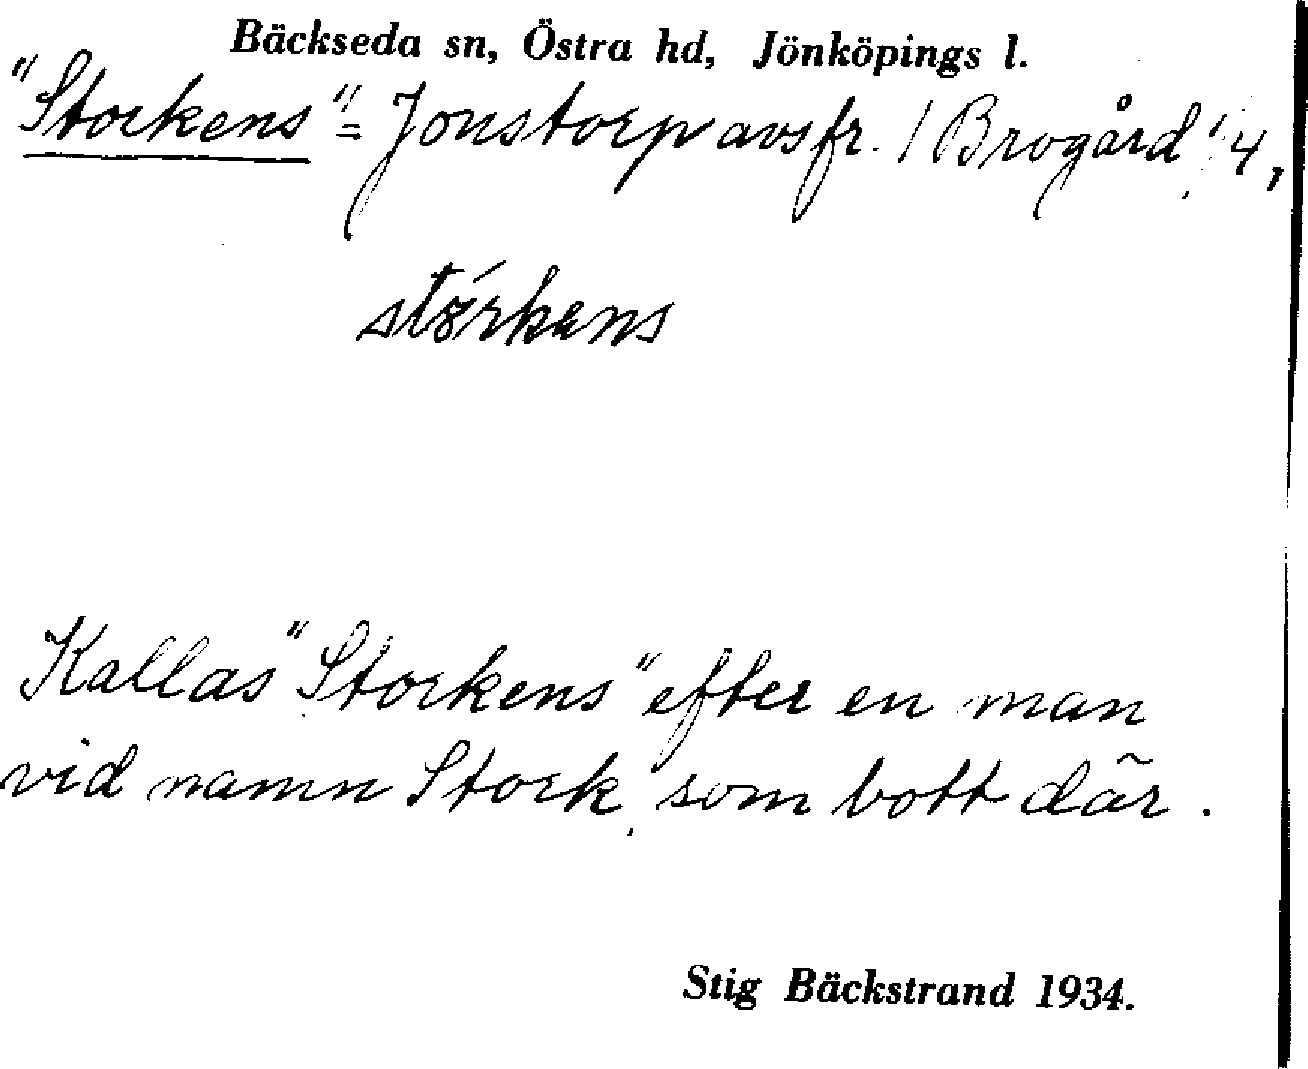 Bäckseda sn, Östra hd, Jönköpings l.
"Storkens" = Jonstorp avs fr. / Brogård 1/4,
stórkens
Kallas "Storkens" efter en man
vid namn Stork, som bott där.
Stig Bäckstrand 1934.